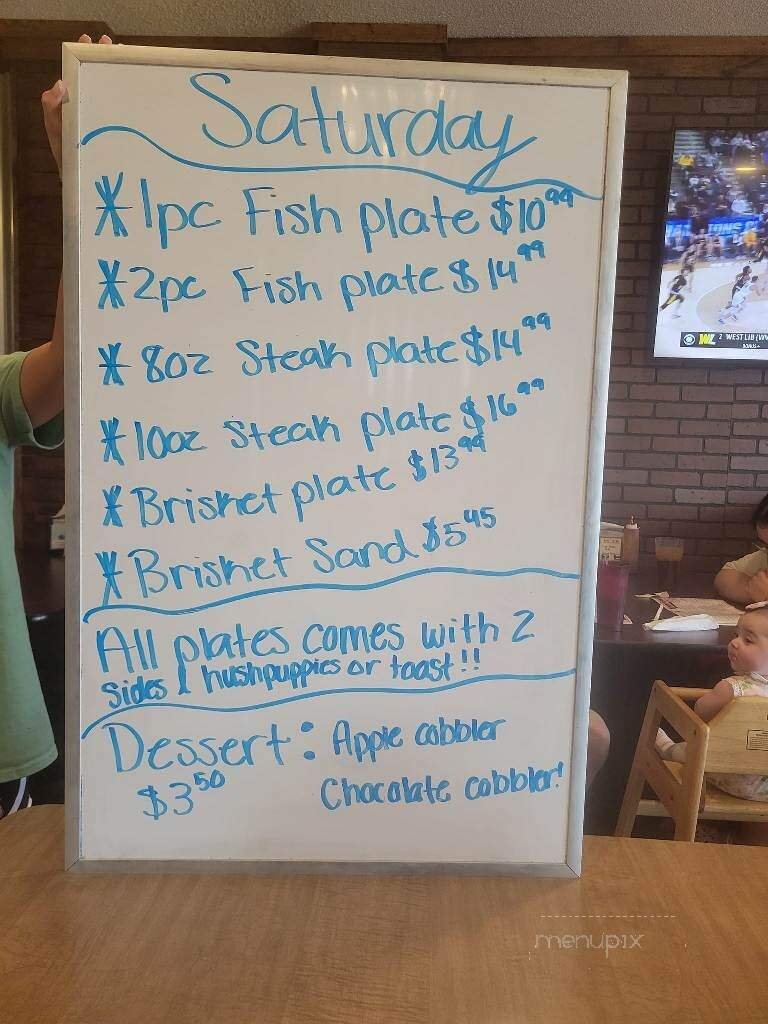 Saturday
*1pc Fish plate $10.99
*2pc Fish plate $14.99
*8oz Steak plate $14.99
*10oz Steak plate $16.99
*Brisket plate $13.99
*Brisket Sand $5.45
All plates comes with 2
sides & hushpuppies or toast!!
Dessert: Apple cobbler
$3.50 Chocalate cobbler!
WEST LIB
menupix